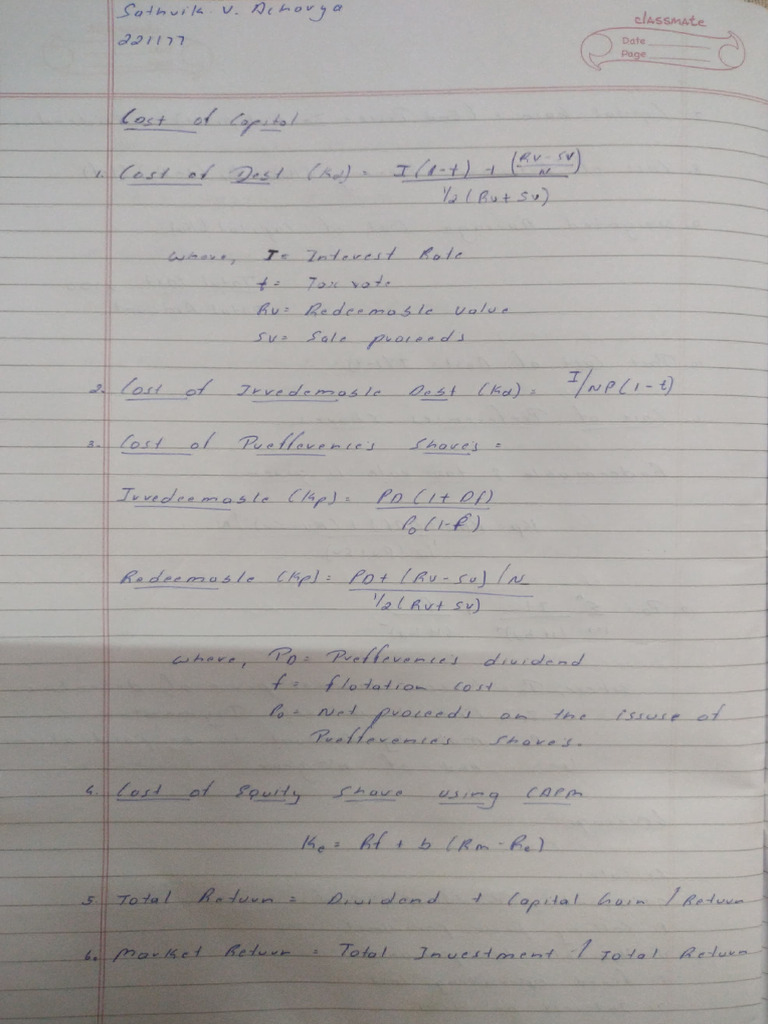 Sathvik V. Acharya
classmate
Date
221177
Page
Cost of Capital
1. Cost of Debt (Kd) = I(1-t) + (RV-SV/N) / ½(RV+SV)
where, I = Interest Rate
t = Tax rate
RV = Redeemable value
SV = Sale proceeds
2. Cost of Irredemable Debt (Kd) = I/NP(1-t)
3. Cost of Prefference's Share's =
Irredeemable (Kp) = PD(1+Df) / P0(1-f)
Redeemable (Kp) = PD+(RV-SV)/N / ½(RV+SV)
where, PD = Prefference's dividend
f = flotation cost
P0 = Net proceeds on the issuse of
Prefference's Share's.
4. Cost of Equity Share using CAPM
Ke = Rf + b (Rm-Re)
5. Total Return = Dividend + Capital Gain / Return
6. Market Return = Total Investment / Total Return